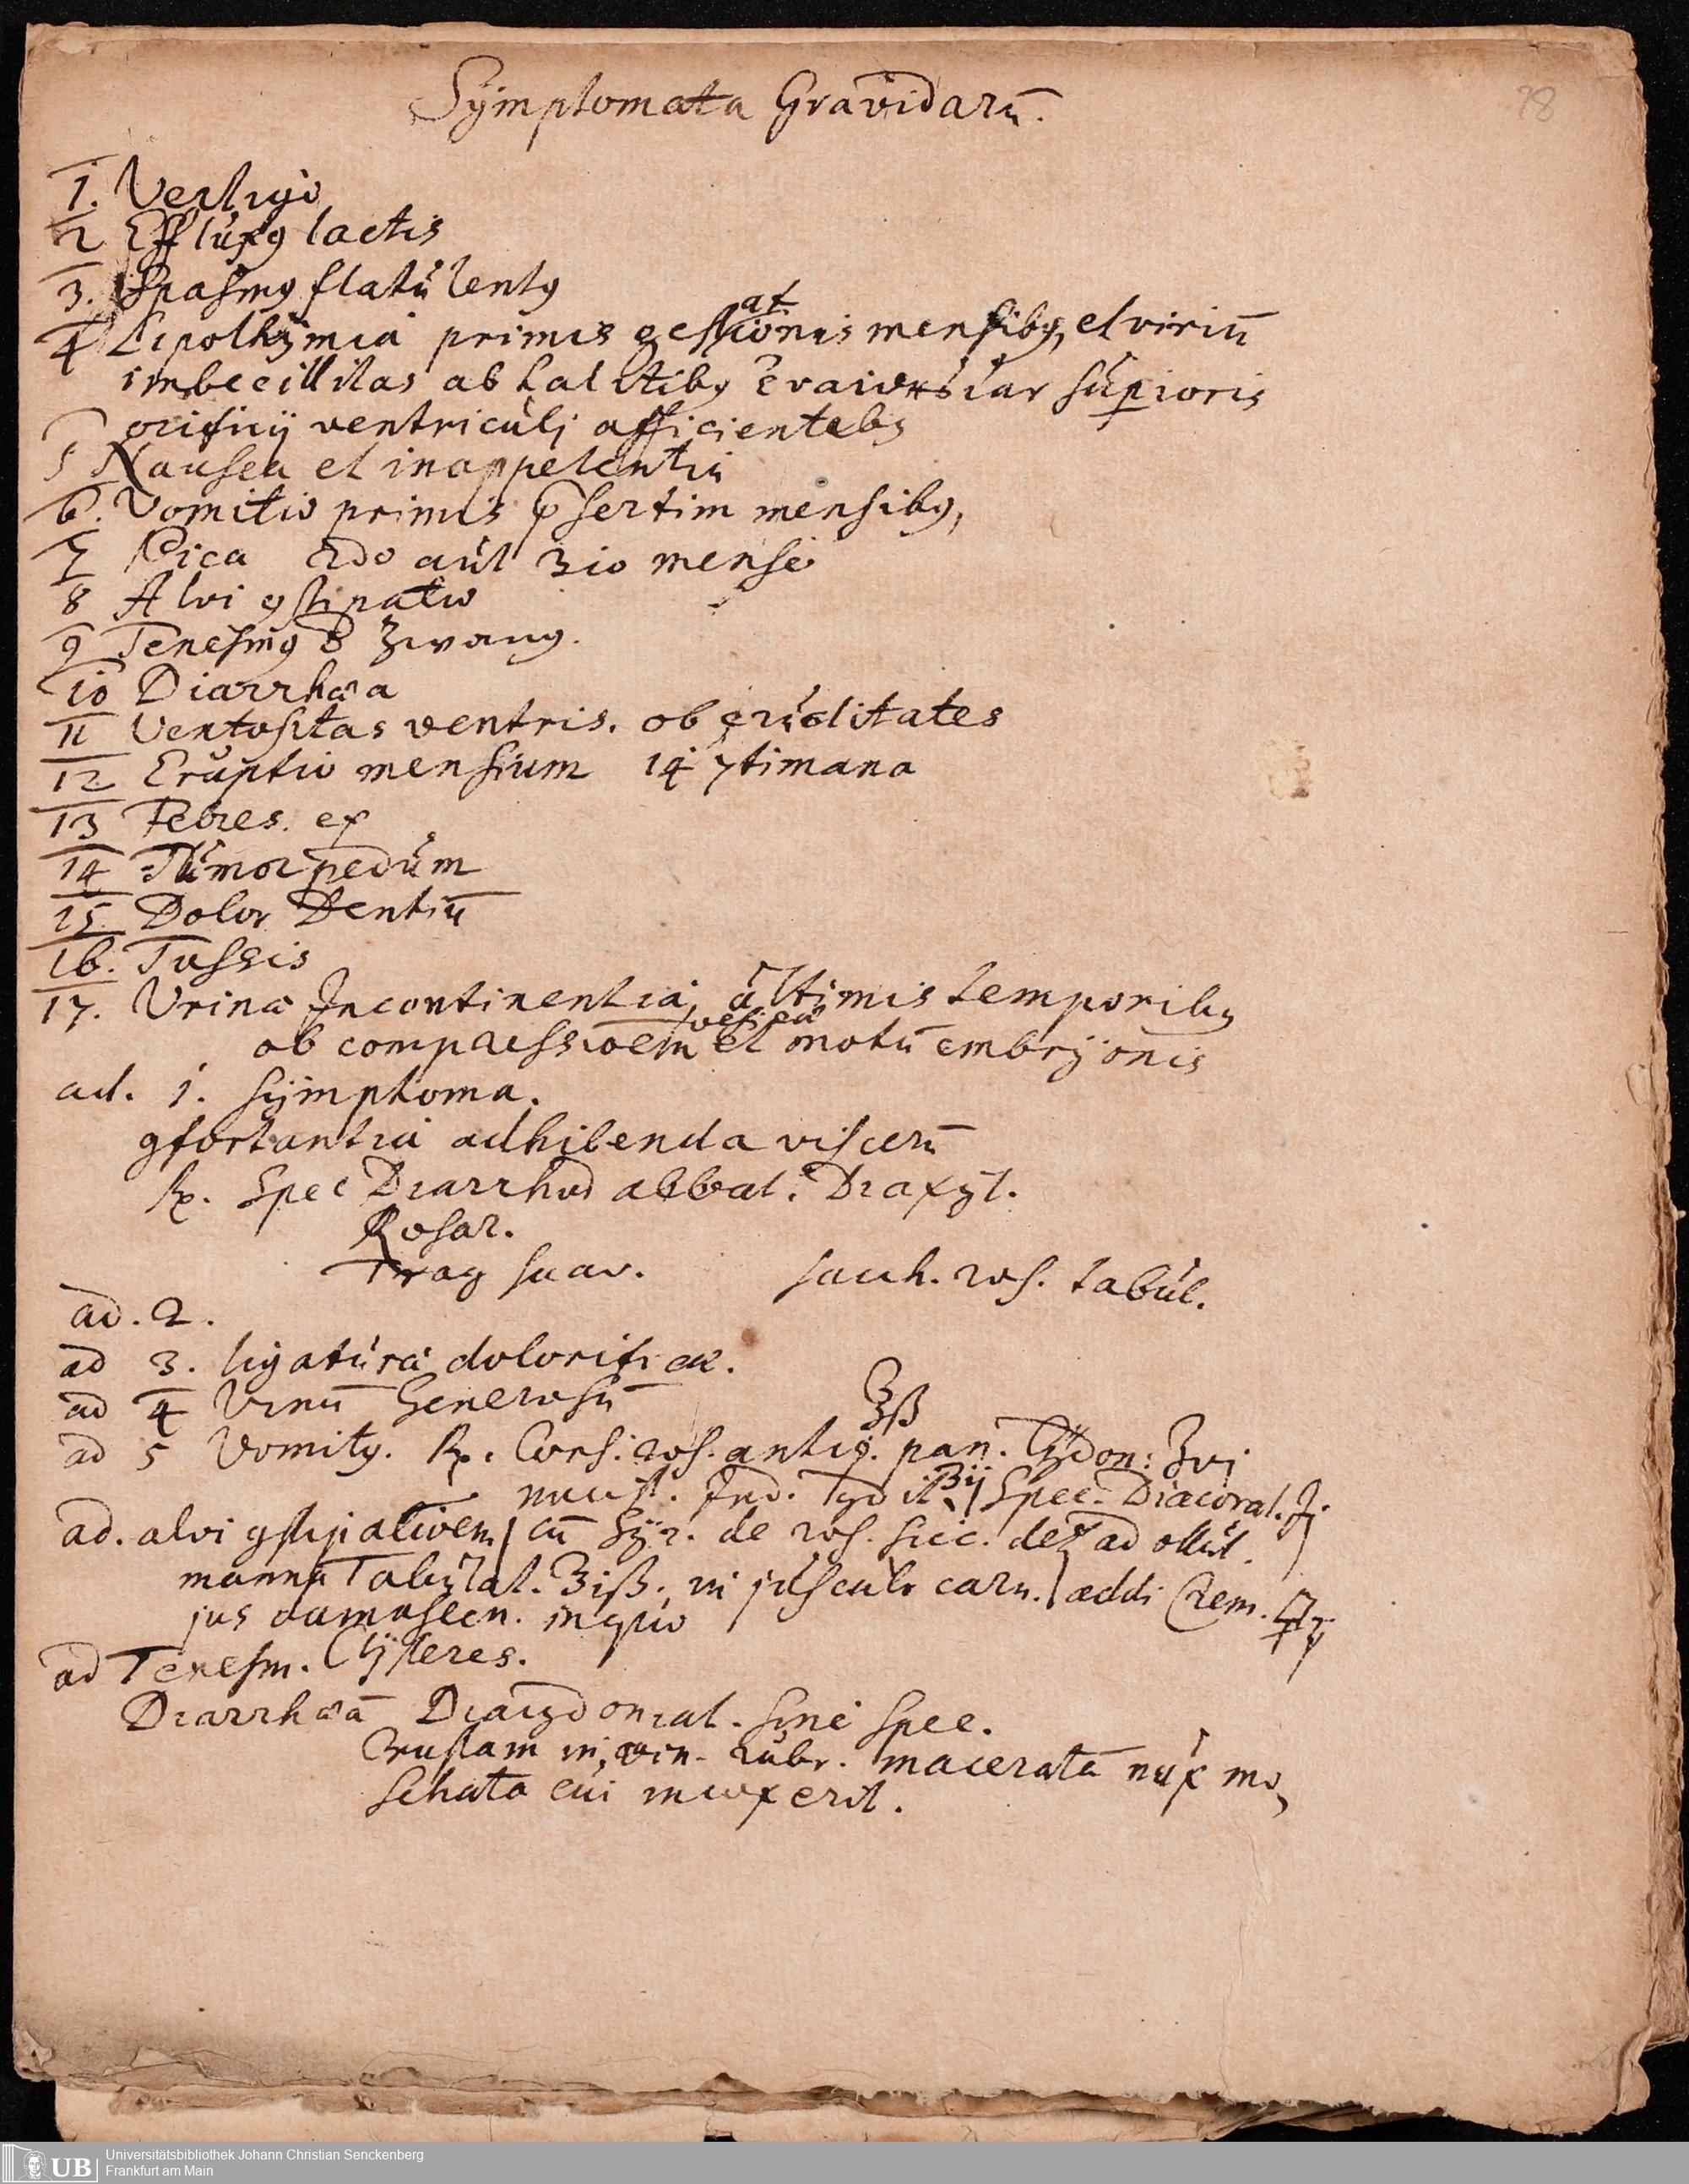 Symptomata Gravidarū.
78
1. Vertigo
2 Effluxꝰ lactis
3. Spasmꝰ flatulentꝰ
4 Lipothymia primis gestationis mensibꝰ, et viriū
imbecillitas ab halitibꝰ superioris
orificij ventriculj afficientibꝰ
5 Nausea et inappetentia
6. Vomitio primis pſertim mensibꝰ,
7 Pica 2do aut 3io mense
8 Alvi ꝯstipatio
9 Tenesmꝰ Zwang.
10 Diarrhœa
11 Ventositas ventris. ob cruditates
12 Eruptio mensium 14 7timana
13 Febres. ex
14 Tumor pedum
15. Dolor Dentiū
16. Tussis
17. Urinæ Incontinentia, ultimis temporibꝰ
ob compressioem vesicæ et motū embryonis
ad. 1. symptoma.
ꝯfortantia adhibenda viscerū
℞. Spec Diarrhod abbat. Diaxyl.
Rosar.
Trag suav. sacch. ros. tabul.
ad. 2.
ad 3. ligatura dolorificæ.
ad 4 Vinū Generosū
ad 5 Vomitꝰ. ℞. Cons. ros. antiq. ℥ß pan. Cydon: ʒvj
nucist. Ind. ʒij Spec. Diacoral. ʒj
ad. alvi ꝯstipationem cū Syr. de ros. sicc.
manna Tabulat. ℥iß. in jusculo carn. addi Crem.
jus damascen. in quo
ad Tenesm. Clysteres.
Diarrhœā Diacydoniat. sine spec.
Crustam in vin. rubr. maceratā nux mo,
schata cui incoxerit.
Universitätsbibliothek Johann Christian Senckenberg
Frankfurt am Main
UB